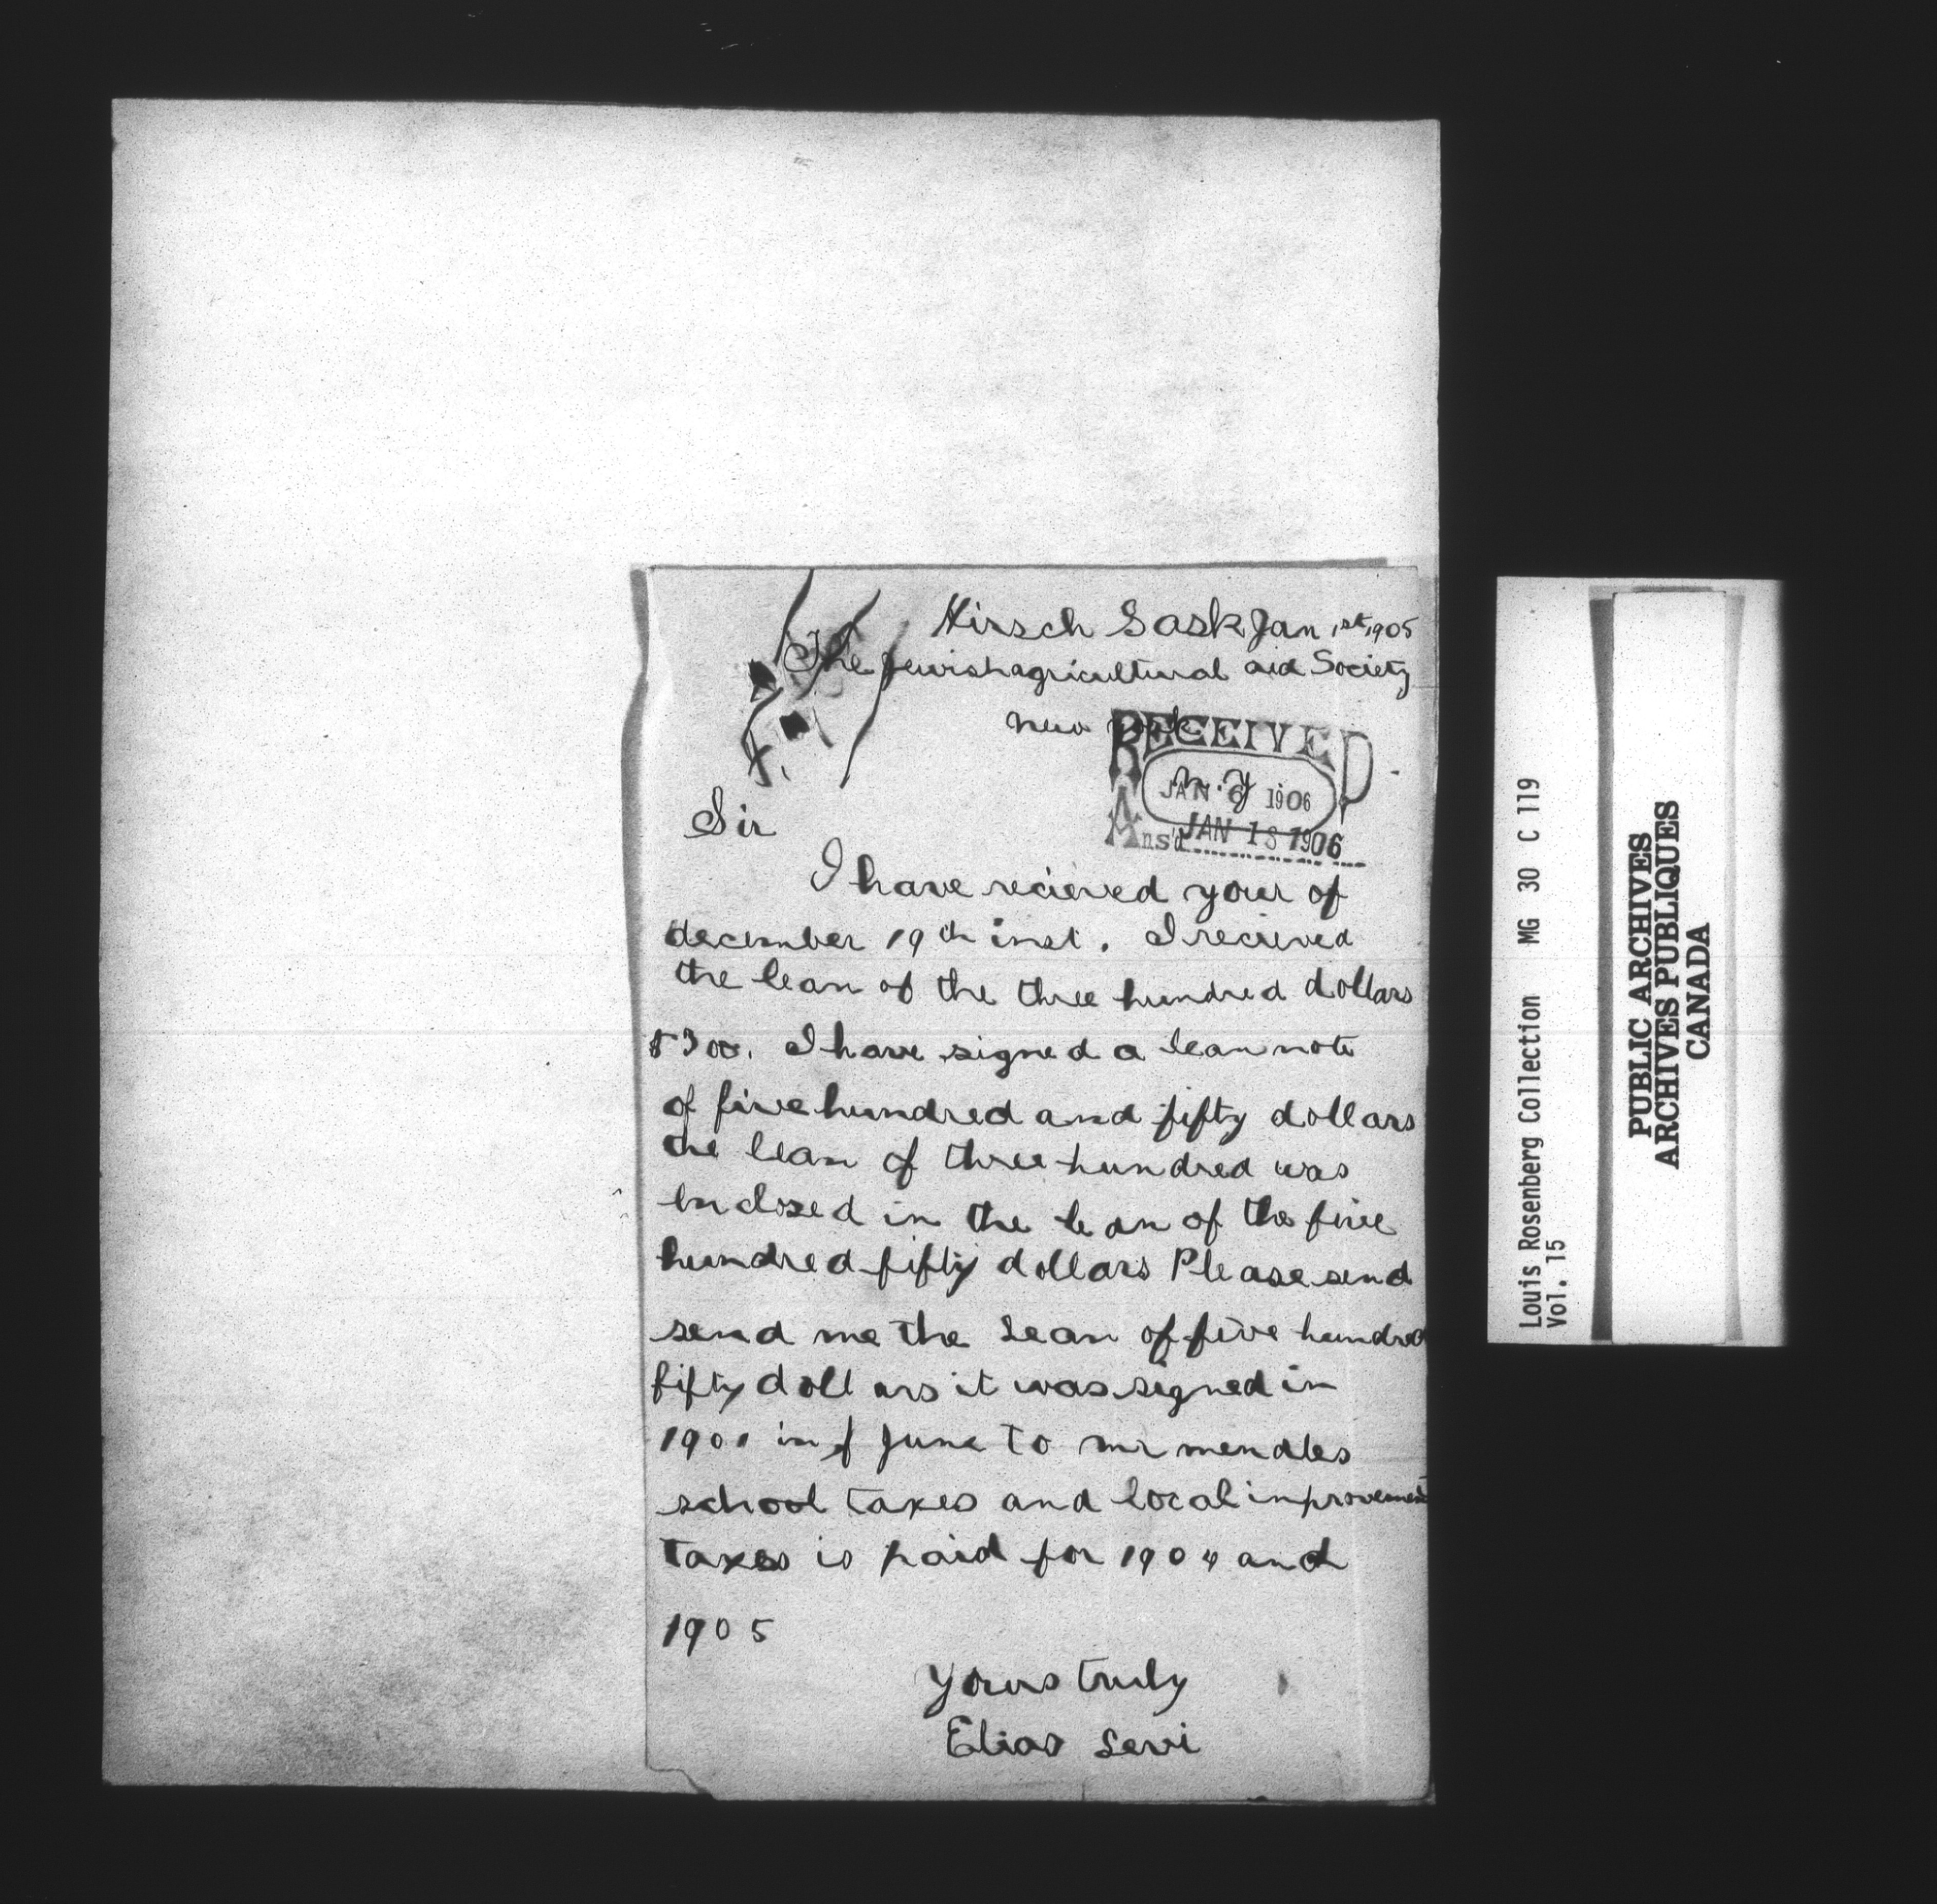 Hirsch Sask Jan 1st, 1905
The Jewish agricultural aid Society
New York
N. Y
RECEIVED
JAN 6 1906
Ans'd JAN 18 1906
Sir
I have recieved your of
december 19th inst. I recieved
the lean of the three hundred dollars
$300. I have signed a lean note
of five hundred and fifty dollars
the lean of three hundred was
enclosed in the lean of the five
hundred fifty dollars Please send
send me the lean of five hundred
fifty dollars it was signed in
1901 in June to mr mendles
school taxes and local improvement
taxes is paid for 1904 and
1905
Yours truly
Elias Levi
Louis Rosenberg Collection MG 30 C 119
Vol. 15
PUBLIC ARCHIVES
ARCHIVES PUBLIQUES
CANADA